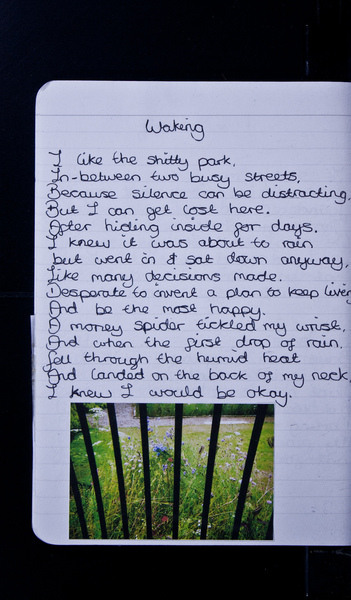 Waking
I like the shitty park,
In-between two busy streets,
Because silence can be distracting,
But I can get lost here.
After hiding inside for days.
I knew it was about to rain
but went in & sat down anyway,
Like many decisions made.
Desperate to invent a plan to keep living
And be the most happy.
A money spider tickled my wrist,
And when the first drop of rain.
Fell through the humid heat
And landed on the back of my neck,
I knew I would be okay.